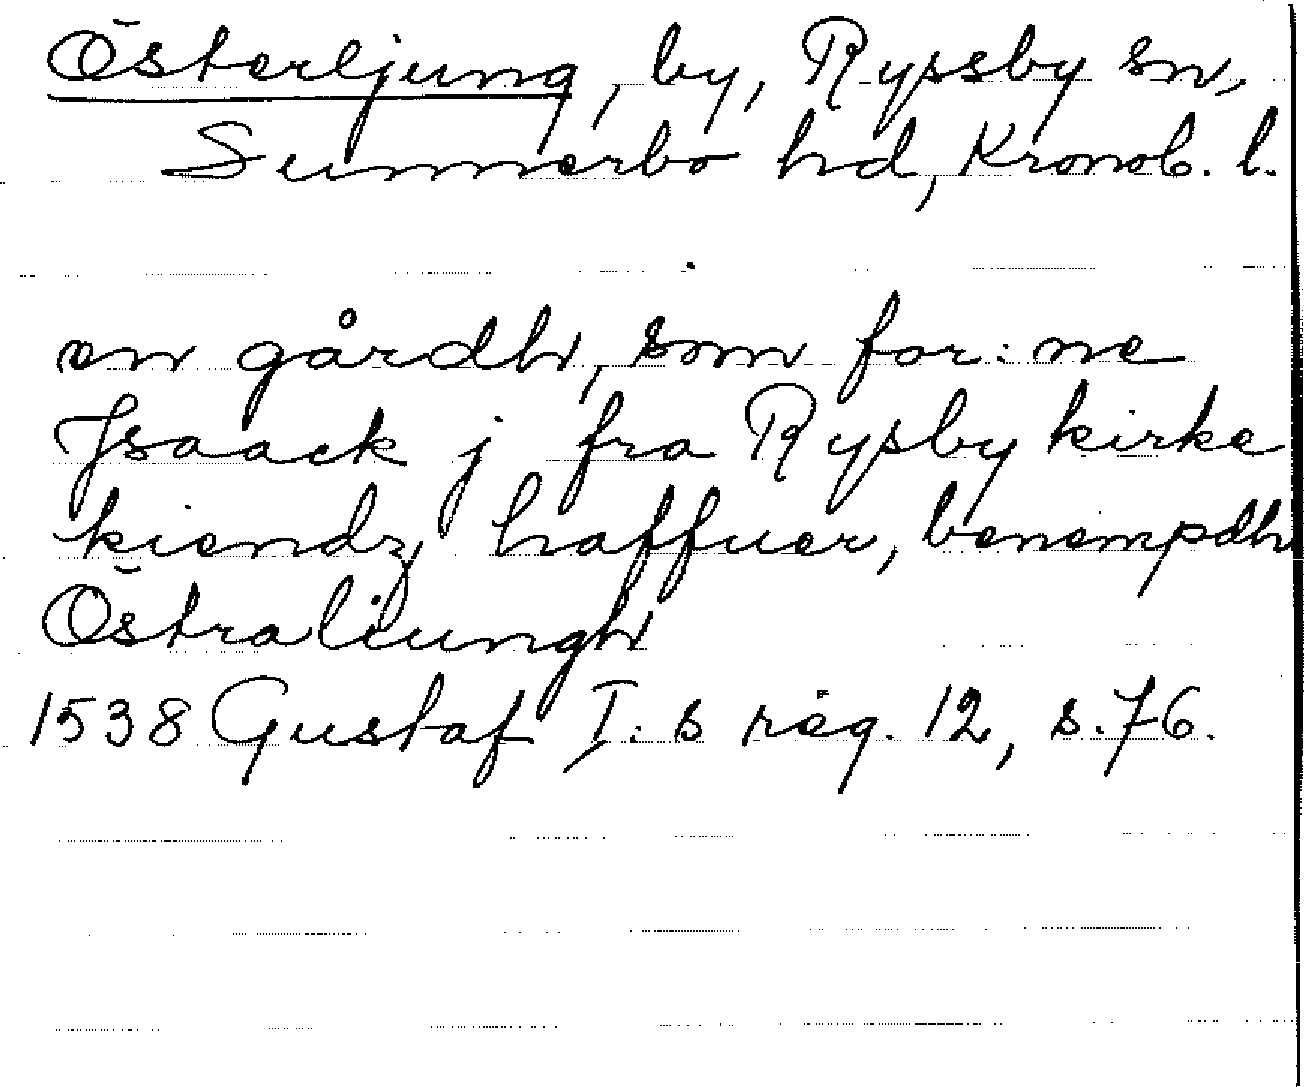 Österljung, by, Ryssby sn,
Sunnerbo hd, Kronob. l.
en gårdh, som for:ne
Jsaack j fra Rysby kirke
kiendz haffuer, benempdh
Östraliungh
1538 Gustaf I:s reg. 12, s. 76.